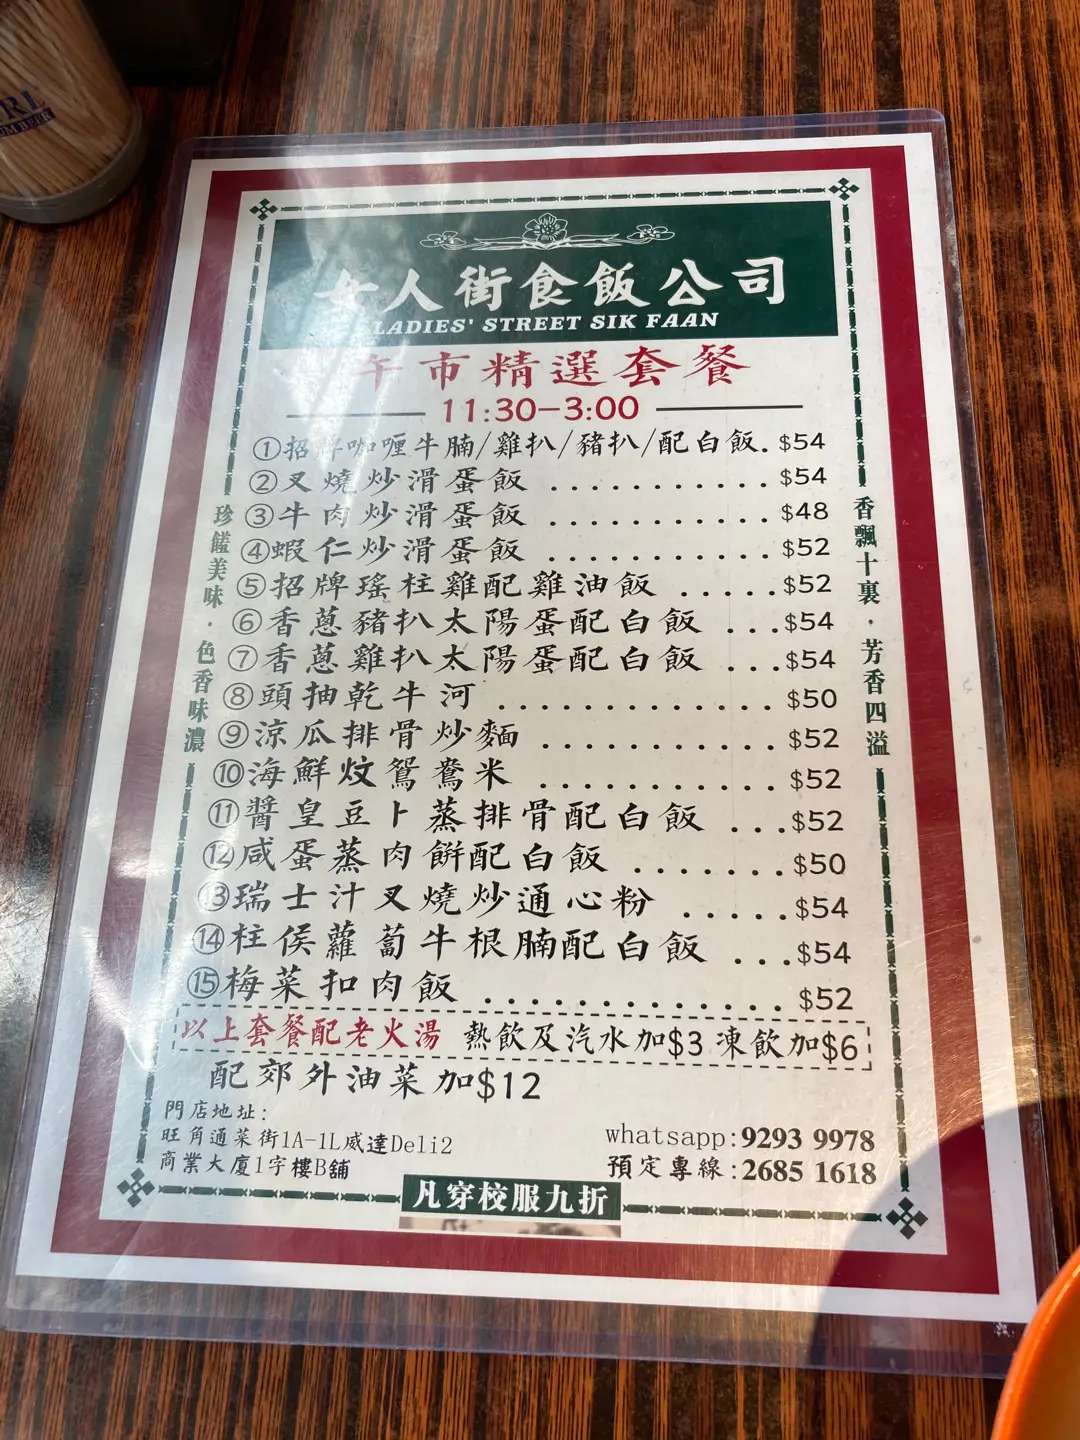 RL
OM BEER
女人街食飯公司
LADIES' STREET SIK FAAN
午市精選套餐
11:30-3:00
①招牌咖喱牛腩/雞扒/豬扒/配白飯. $54
②叉燒炒滑蛋飯 .......... $54
③牛肉炒滑蛋飯 .......... $48
④蝦仁炒滑蛋飯 .......... $52
⑤招牌瑤柱雞配雞油飯 ..... $52
⑥香蔥豬扒太陽蛋配白飯 ... $54
⑦香蔥雞扒太陽蛋配白飯 ... $54
⑧頭抽乾牛河 ............. $50
⑨涼瓜排骨炒麵 ........... $52
⑩海鮮炆鴛鴦米 ........... $52
⑪醬皇豆卜蒸排骨配白飯 ... $52
⑫咸蛋蒸肉餅配白飯 ....... $50
⑬瑞士汁叉燒炒通心粉 ..... $54
⑭柱侯蘿蔔牛根腩配白飯 ... $54
⑮梅菜扣肉飯 ............. $52
以上套餐配老火湯 熱飲及汽水加$3 凍飲加$6
配郊外油菜加$12
珍饈美味·色香味濃
香飄十裏·芳香四溢
門店地址:
旺角通菜街1A-1L威達Deli2
商業大廈1字樓B舖
whatsapp:9293 9978
預定專線:2685 1618
凡穿校服九折